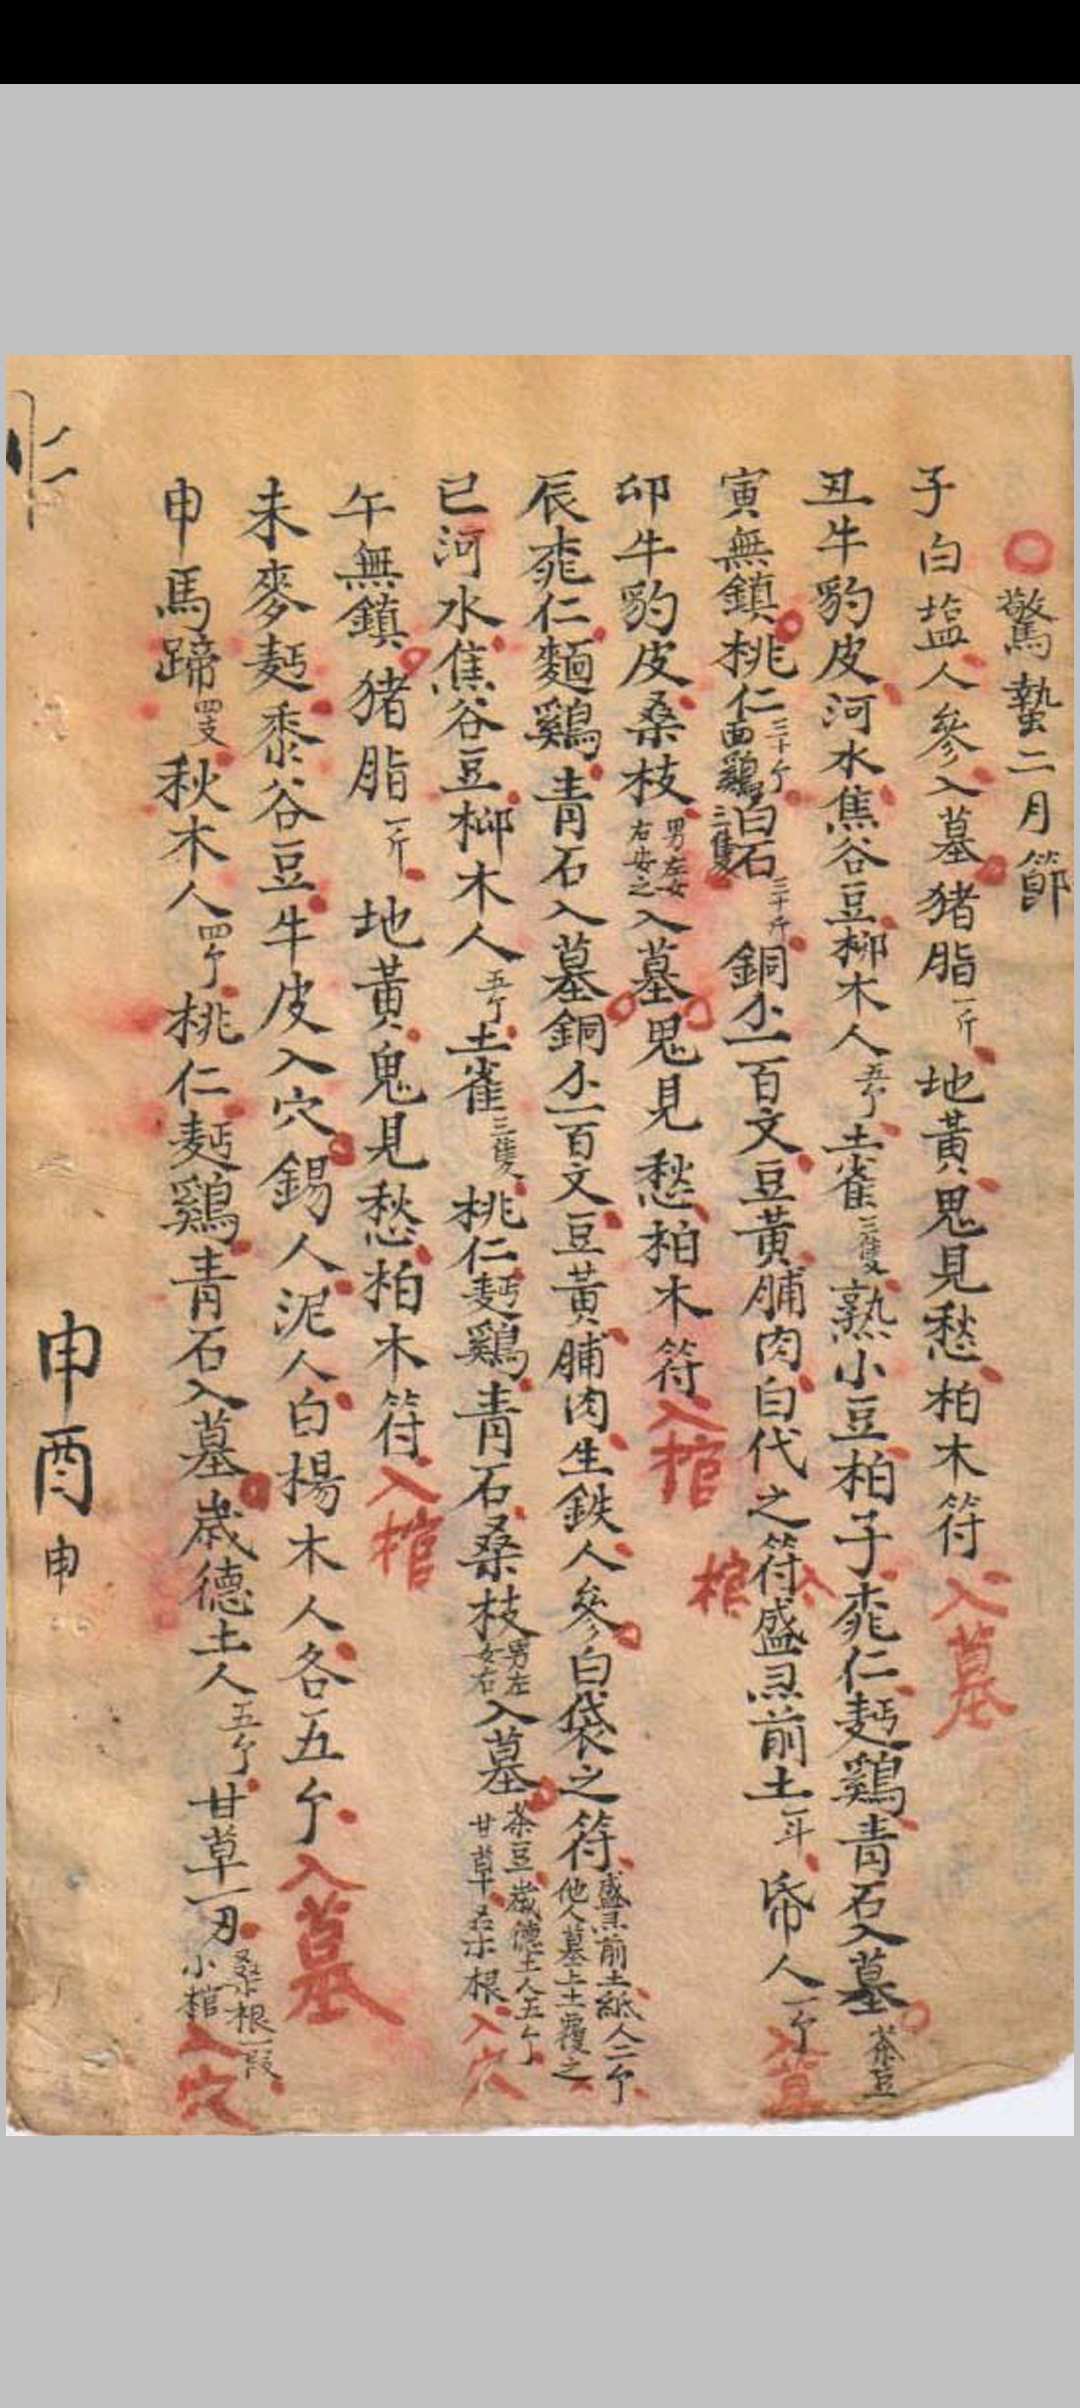 驚蟄二月節
子白塩人參入墓猪脂一斤地黃鬼見愁柏木符入墓
丑牛豹皮河水焦谷豆柳木人五个土雀三隻熟小豆柏子桃仁麪鷄青石入墓茶豆
寅無鎮桃仁三十个面鷄三隻白石三十斤銅全一百文豆黃脯肉白代之符盛灵前土一斗帋人一个入棺
卯牛豹皮桑枝男左女右安之入墓鬼見愁柏木符入棺
辰桃仁麵鷄青石入墓銅全一百文豆黃脯肉生鉄人參白袋之符盛灵前土紙人二个他人墓上土覆之
巳河水焦谷豆柳木人五个土雀三隻桃仁麪鷄青石桑枝男左女右入墓茶豆歲德土人五个甘草桑根入穴
午無鎮猪脂一斤地黃鬼見愁柏木符入棺
未麥麪黍谷豆牛皮入穴錫人泥人白楊木人各五个入墓
申馬蹄四支秋木人四个桃仁麪鷄青石入墓歲德土人五个甘草一刃桑根一段小棺入穴
申酉
申